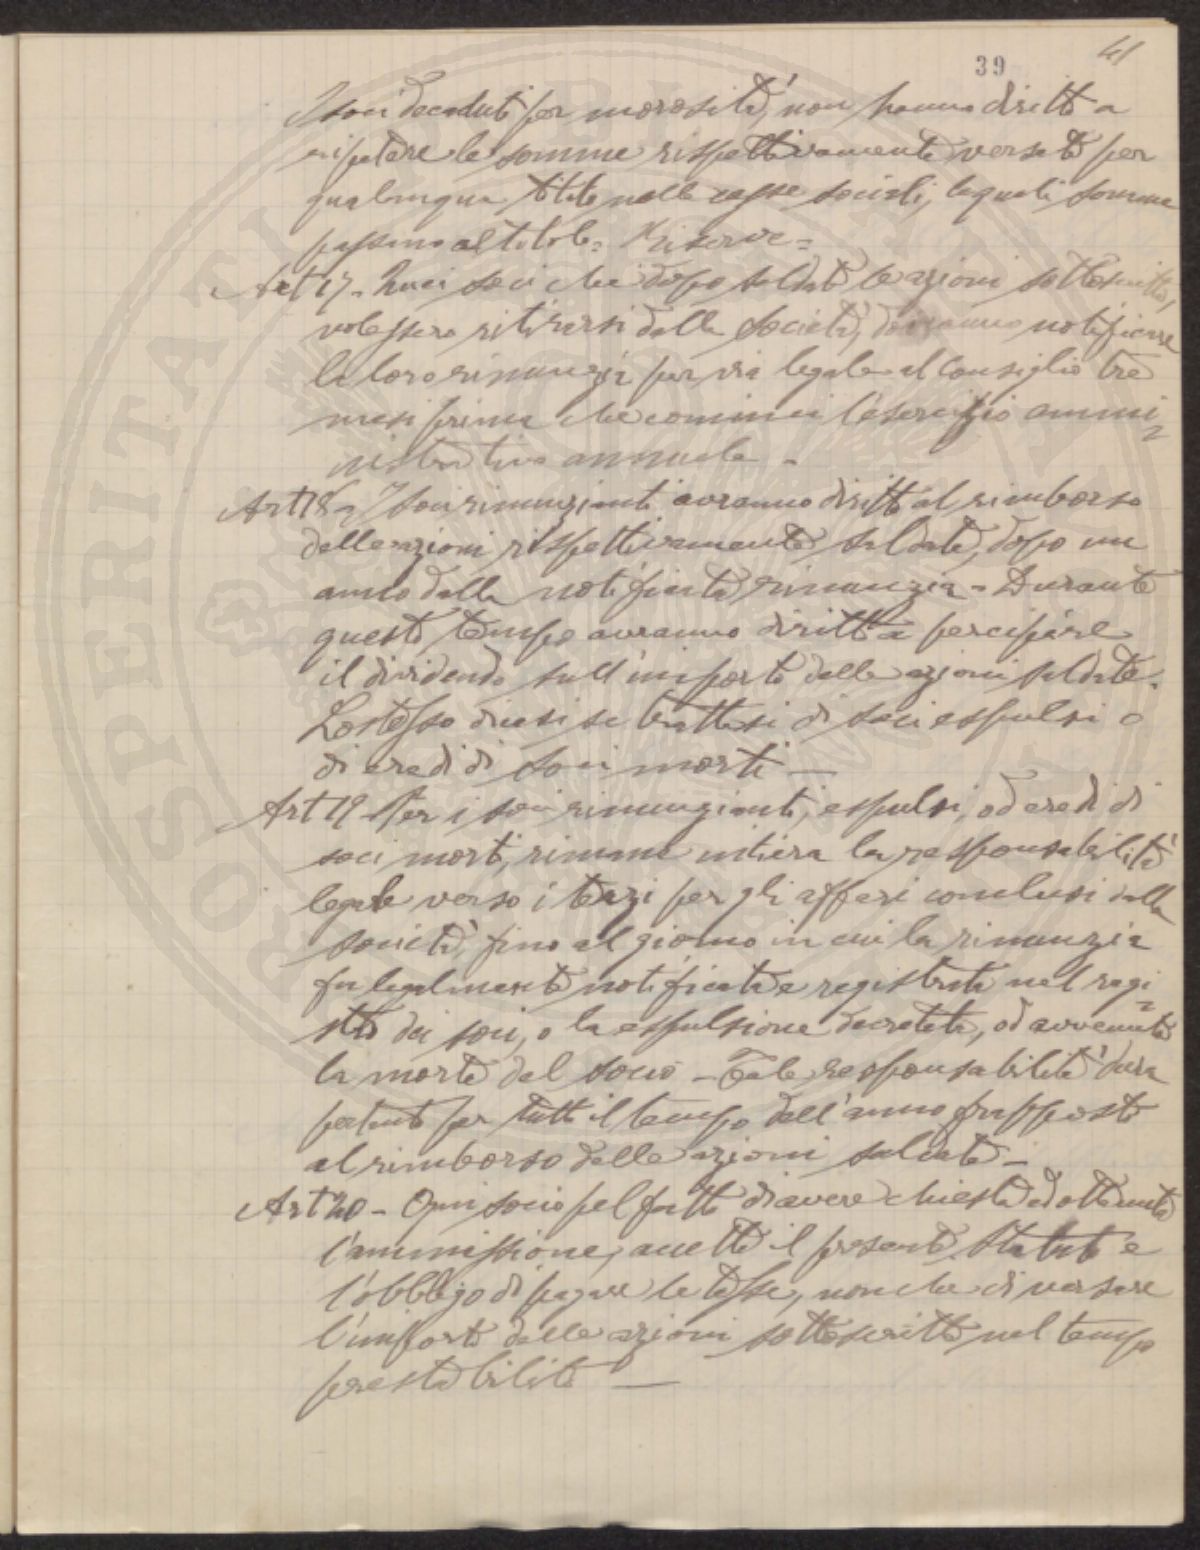 41
39
I soci decaduti per morosità, non hanno diritto a
ripetere le somme rispettivamente versate per
qualunque titolo nelle casse sociali, le quali somme
passano al titolo = Riserve =
Art 17 - Quei soci che dopo saldate le azioni sottoscritte,
volessero ritirarsi dalla Società, dovranno notificare
la loro rinunzia per via legale al Consiglio tre
mesi prima che cominci l'esercizio ammi=
nistrativo annuale -
Art 18 - I soci rinunzianti avranno diritto al rimborso
delle azioni rispettivamente saldate, dopo un
anno dalla notificata rinunzia - Durante
questo tempo avranno diritto a percipire
il dividendo sull'importo delle azioni saldate.
Lo stesso dicasi se trattasi di soci espulsi o
di eredi di soci morti —
Art 19 - Per i soci rinunzianti, espulsi, od eredi di
soci morti, rimane intiera la responsabilità
legale verso i terzi per gli affari conclusi dalla
società, fino al giorno in cui la rinunzia
fu legalmente notificata e registrata nel regi=
stro dei soci, o la espulsione decretata, od avvenuta
la morte del socio - Tale responsabilità dura
pertanto per tutto il tempo dell'anno frapposto
al rimborso delle azioni saldate -
Art 20 - Ogni socio pel fatto di avere chiesta ed ottenuta
l'ammissione, accetta il presente Statuto e
l'obbligo di pagare le tasse, nonche di versare
l'importo delle azioni sottoscritte nel tempo
prestabilito —
PROSPERITATI